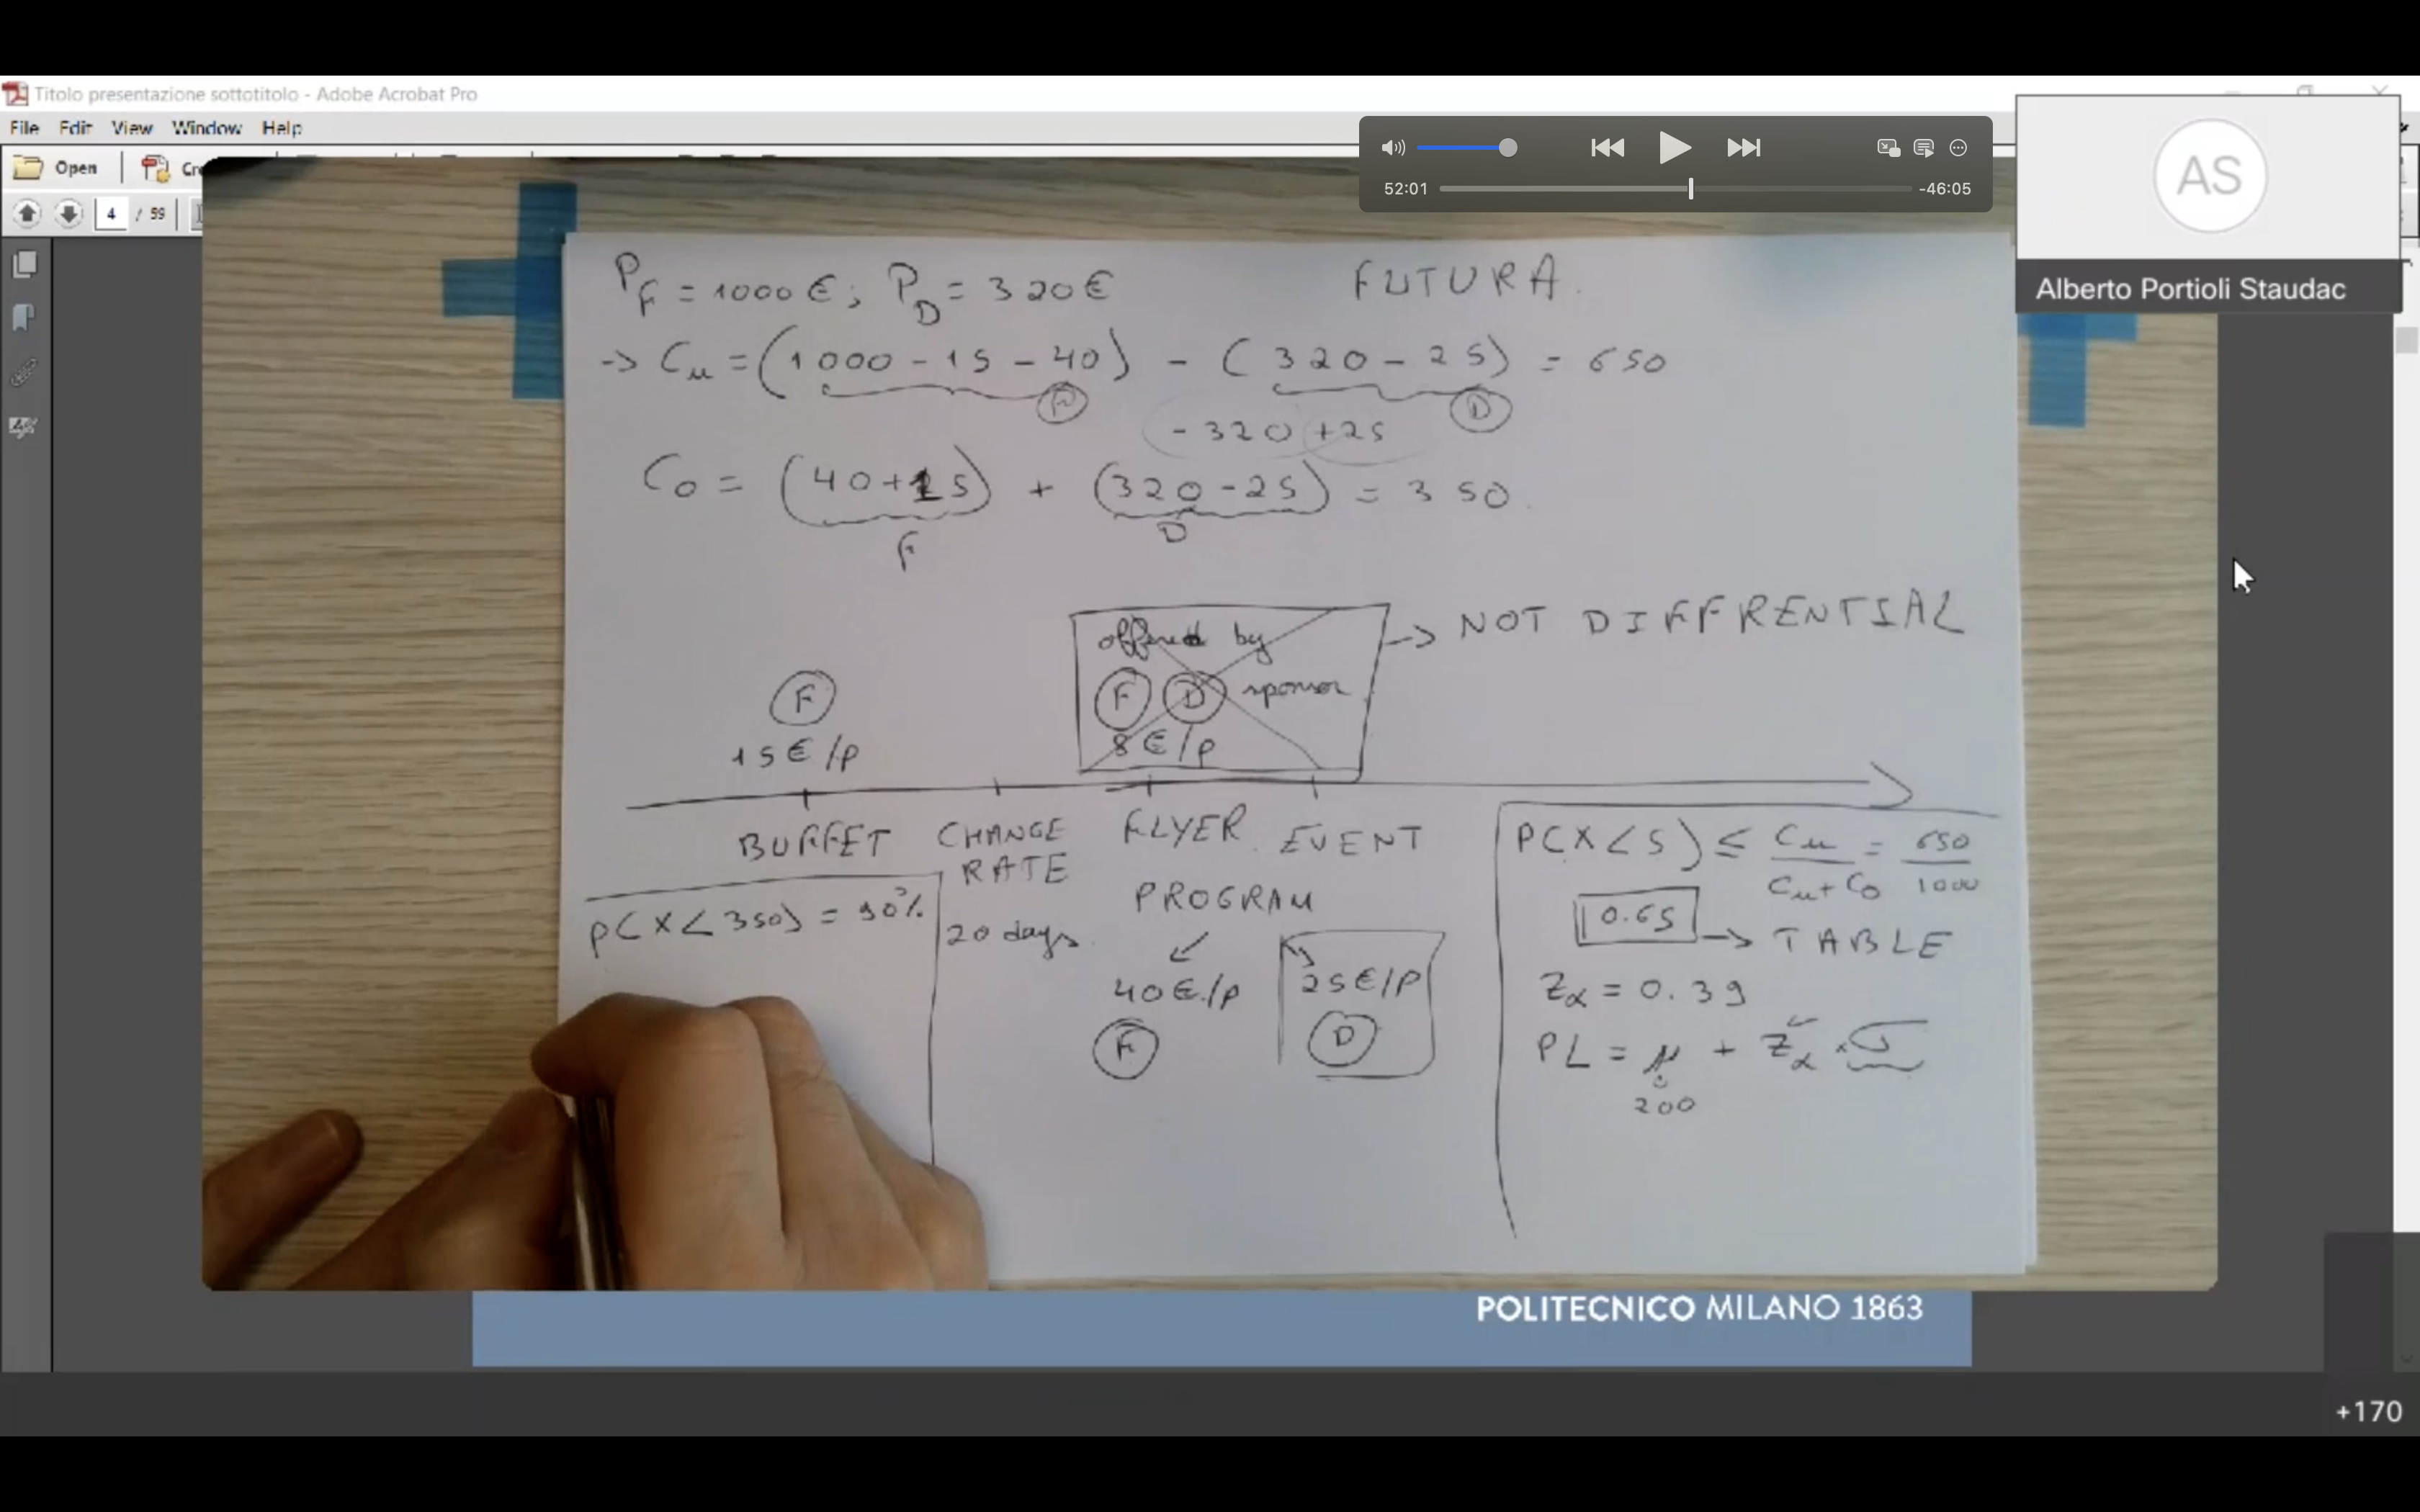 Titolo presentazione sottotitolo - Adobe Acrobat Pro
File Edit View Window Help
Open Cre
4 / 59
52:01 -46:05
AS
Alberto Portioli Staudac
P_F = 1000 €; P_D = 320 € FUTURA.
-> Cu = (1000 - 15 - 40) - (320 - 25) = 650
F D
- 320 + 25
Co = (40 + 15) + (320 - 25) = 350.
F D
offered by
F D sponsor
8 €/p
-> NOT DIFFRENTIAL
F
15 €/p
BUFFET CHANGE RATE FLYER EVENT
PROGRAM
20 days.
40 €/p 25 €/p
F D
P(X<350) = 90%
P(X<S) ≤ Cu / Cu + Co = 650 / 1000
0.65 -> TABLE
Zα = 0.39
PL = μ + Zα × σ
200
POLITECNICO MILANO 1863
+170